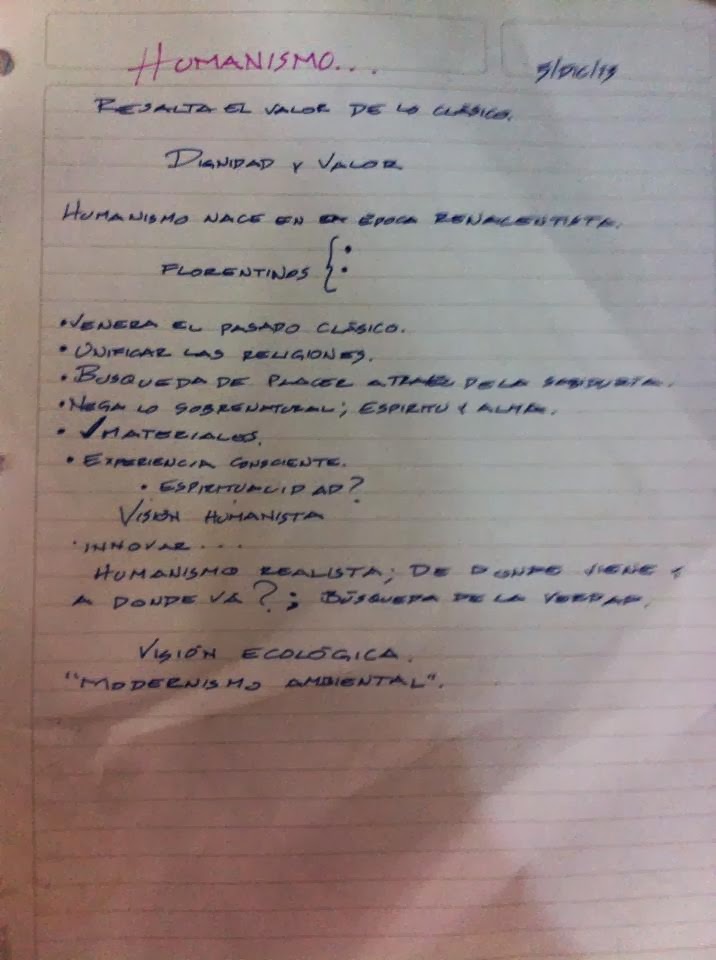 HUMANISMO...
5/DIC/13
RESALTA EL VALOR DE LO CLÁSICO.
DIGNIDAD Y VALOR
HUMANISMO NACE EN ÉPOCA RENACENTISTA.
FLORENTINOS { •
•
• VENERA EL PASADO CLÁSICO.
• UNIFICAR LAS RELIGIONES.
• BUSQUEDA DE PLACER A TRAVEZ DE LA SABIDURÍA.
• NEGA LO SOBRENATURAL; ESPIRITU Y ALMA.
• ✓MATERIALES.
• EXPERIENCIA CONSCIENTE.
• ESPIRITUALIDAD?
VISIÓN HUMANISTA
• INNOVAR...
HUMANISMO REALISTA; DE DONDE VIENE Y
A DONDE VA?; BÚSQUEDA DE LA VERDAD.
VISIÓN ECOLÓGICA.
"MODERNISMO AMBIENTAL".